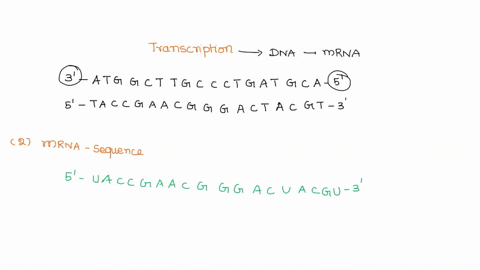 Transcription → DNA – mRNA
3' – ATG GCTTGCCCTGATGCA – 5'
5' – TACCGAACGGGACTACGT – 3'
(2) mRNA – Sequence
5' – UACCGAACG GG ACUACGU – 3'